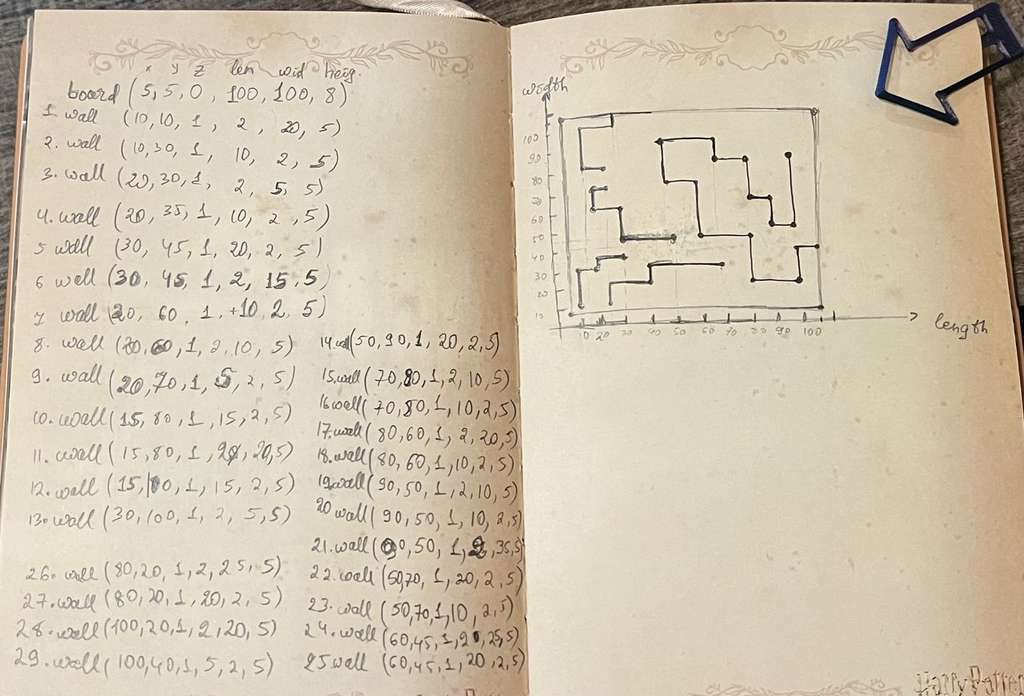 x y z len wid heig.
board (5, 5, 0, 100, 100, 8)
1. wall (10,10, 1, 2, 20, 5)
2. wall (10,30, 1, 10, 2, 5)
3. wall (20,30,1, 2, 5, 5)
4. wall (20, 35, 1, 10, 2, 5)
5 wall (30, 45, 1, 20, 2, 5)
6 wall (30, 45, 1, 2, 15, 5)
7 wall (20, 60, 1, +10, 2, 5)
8. wall (20, 60, 1, 2, 10, 5)
9. wall (20, 70, 1, 5, 2, 5)
10. wall (15, 80, 1, 15, 2, 5)
11. wall (15, 80, 1, 2, 20, 5)
12. wall (15, 100, 1, 15, 2, 5)
13. wall (30, 100, 1, 2, 5, 5)
26. wall (80, 20, 1, 2, 25, 5)
27. wall (80, 20, 1, 20, 2, 5)
28. wall (100, 20, 1, 2, 20, 5)
29. wall (100, 40, 1, 5, 2, 5)
14. wall (50, 90, 1, 20, 2, 5)
15. wall (70, 80, 1, 2, 10, 5)
16 wall (70, 80, 1, 10, 2, 5)
17. wall (80, 60, 1, 2, 20, 5)
18. wall (80, 60, 1, 10, 2, 5)
19 wall (90, 50, 1, 2, 10, 5)
20 wall (90, 50, 1, 10, 2, 5)
21. wall 50, 1, 2, 35, 5
22. wall (50,70, 1, 20, 2, 5)
23. wall (50,70,1,10, 2,5)
24. wall (60,45,1,2, 25,5)
25 wall (60,45,1, 20, 2,5)
width
100
90
80
70
60
50
40
30
20
10
10 20 30 40 50 60 70 80 90 100
length
Harry Potter